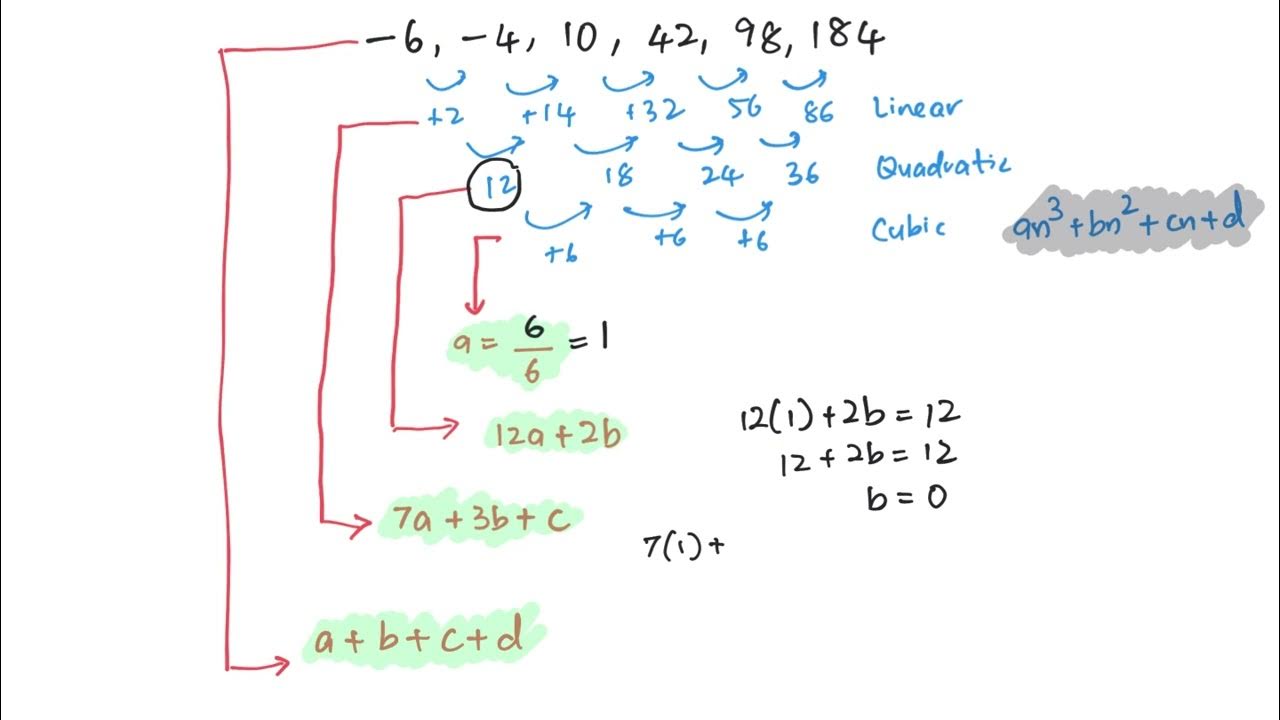 -6, -4, 10, 42, 98, 184
+2 +14 +32 56 86 Linear
12 18 24 36 Quadratic
+6 +6 +6 Cubic an³+bn²+cn+d
a = 6/6 = 1
12(1)+2b = 12
12a+2b
12 + 2b = 12
b = 0
7a+3b+c
7(1)+
a+b+c+d